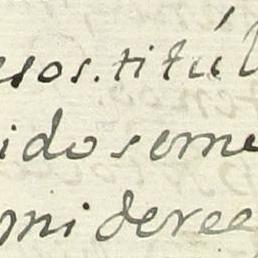 esos. titúl
ido seme
mi deree